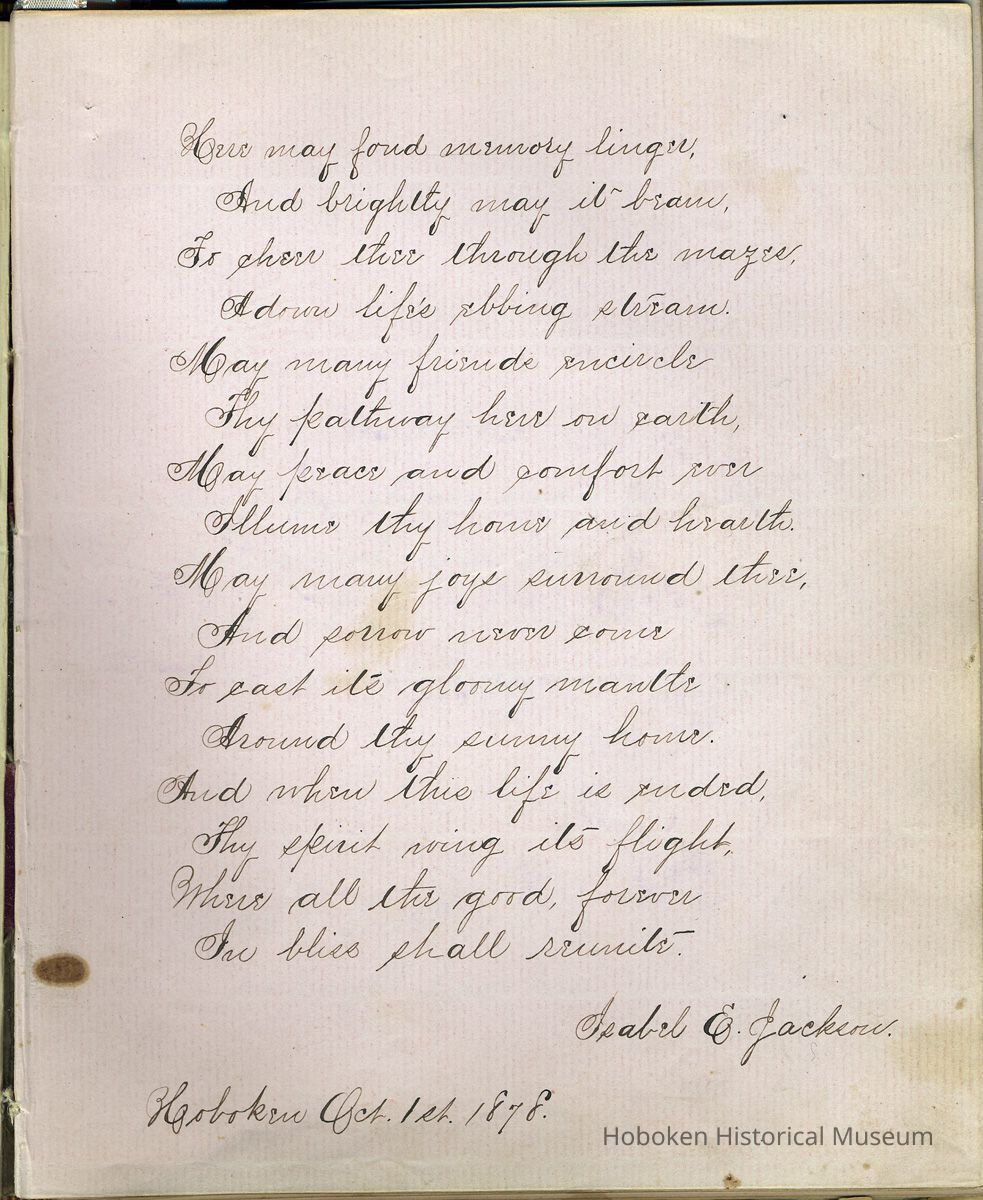 Here may fond memory linger,
And brightly may it beam,
To cheer thee through the mazes,
Adown life's ebbing stream.
May many friends encircle
Thy pathway here on earth,
May peace and comfort ever
Illume thy home and hearth.
May many joys surround thee,
And sorrow never come
To cast its gloomy mantle
Around thy sunny home.
And when this life is ended,
Thy spirit wing its flight,
Where all the good, forever
In bliss shall reunite.
Isabel E. Jackson.
Hoboken Oct. 1st. 1878.
Hoboken Historical Museum